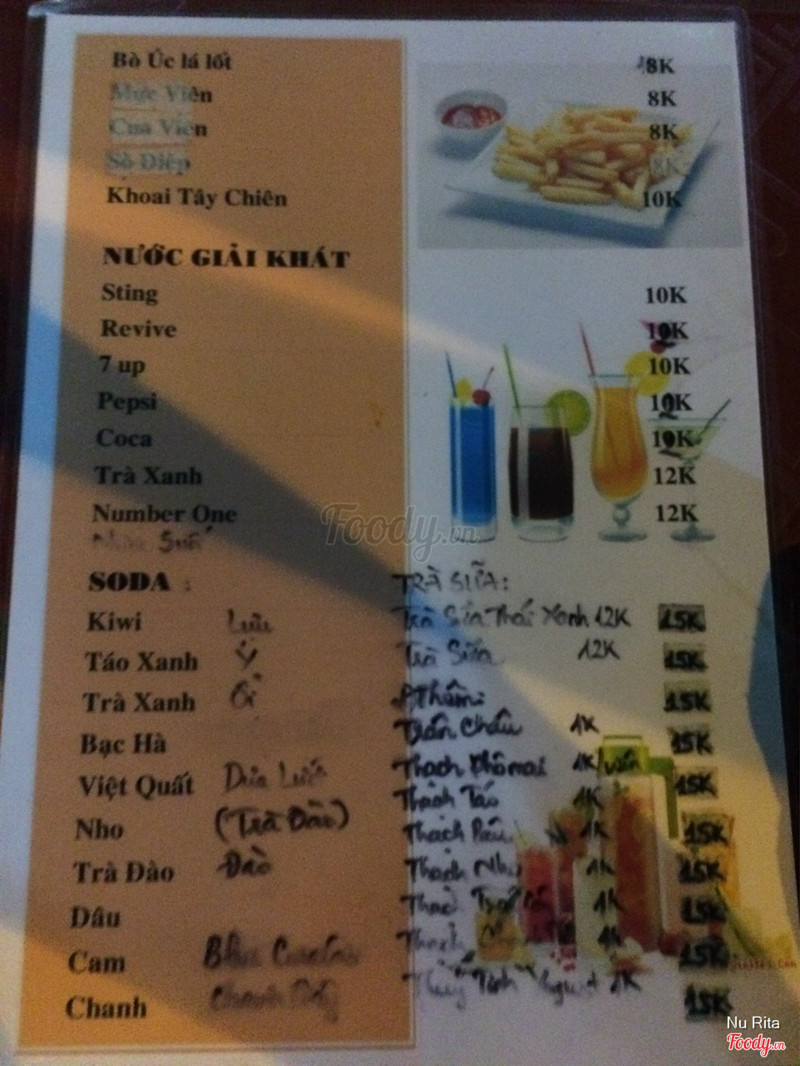 Bò Úc lá lốt 8K
Mực Viên 8K
Cua Viên 8K
Sò Điệp 8K
Khoai Tây Chiên 10K
NƯỚC GIẢI KHÁT
Sting 10K
Revive
7 up 10K
Pepsi
Coca
Trà Xanh 12K
Number One 12K
Foody.vn
SODA : TRÀ SỮA:
Kiwi Lựu Trà Sữa Thái Xanh 12K 15K
Táo Xanh Trà Sữa 12K 15K
Trà Xanh Ổi 15K
Bạc Hà Trân Châu 1K 15K
Việt Quất Dưa Lưới Thạch Phô mai 1K/viên 15K
Nho (Trà Đào) Thạch Táo 1K 15K
Trà Đào Đào Thạch 1K 15K
Dâu Thạch Nho 1K 15K
Cam Thạch 1K 15K
Chanh Thạch 1K 15K
1K
Nu Rita
Foody.vn